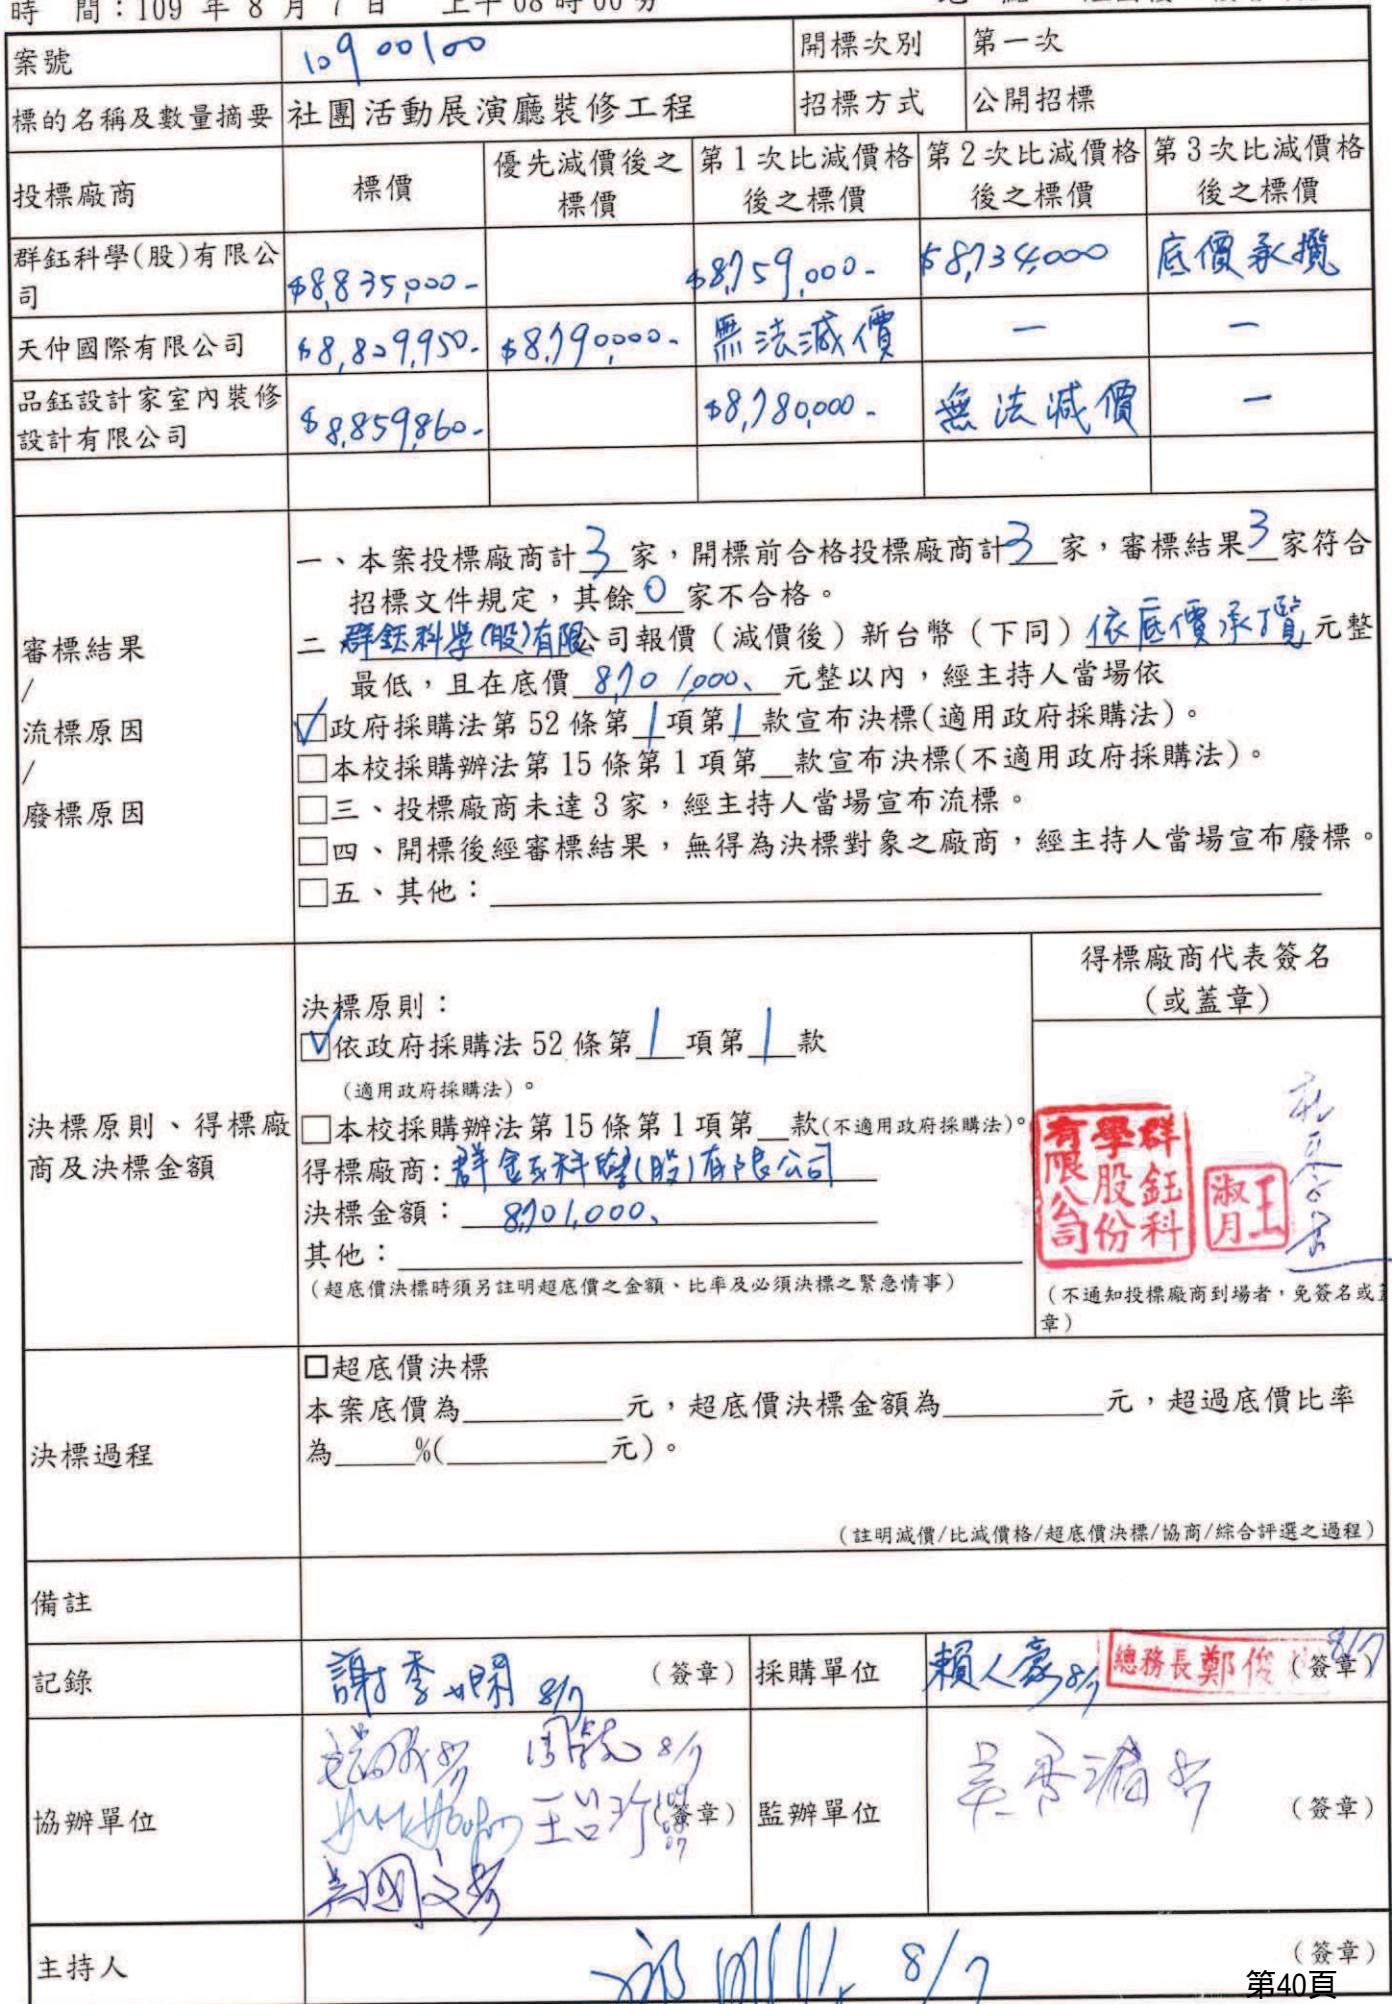 時 間：109 年 8 月 7 日 上午 08 時 00 分
案號 10900100 開標次別 第一次
標的名稱及數量摘要 社團活動展演廳裝修工程 招標方式 公開招標
投標廠商 標價 優先減價後之標價 第1次比減價格後之標價 第2次比減價格後之標價 第3次比減價格後之標價
群鈺科學(股)有限公司 $8,835,000- $8,759,000- $8,734,000 底價承攬
天仲國際有限公司 $8,809,950- $8,790,000- 無法減價 — —
品鈺設計家室內裝修設計有限公司 $8,859,860- $8,780,000- 無法減價 —
審標結果
/
流標原因
/
廢標原因
一、本案投標廠商計3家，開標前合格投標廠商計3家，審標結果3家符合
招標文件規定，其餘0家不合格。
二 群鈺科學(股)有限公司報價（減價後）新台幣（下同）依底價承攬元整
最低，且在底價8,701,000、元整以內，經主持人當場依
☑政府採購法第 52 條第1項第1款宣布決標(適用政府採購法)。
□本校採購辦法第 15 條第 1 項第__款宣布決標(不適用政府採購法)。
□三、投標廠商未達 3 家，經主持人當場宣布流標。
□四、開標後經審標結果，無得為決標對象之廠商，經主持人當場宣布廢標。
□五、其他：
決標原則、得標廠商及決標金額
決標原則：
☑依政府採購法 52 條第1項第1款
(適用政府採購法)。
□本校採購辦法第 15 條第 1 項第__款(不適用政府採購法)。
得標廠商:群鈺科學(股)有限公司
決標金額：8,701,000、
其他：
(超底價決標時須另註明超底價之金額、比率及必須決標之緊急情事)
得標廠商代表簽名
(或蓋章)
群鈺科學股份有限公司
王淑月
(不通知投標廠商到場者，免簽名或
章)
決標過程
□超底價決標
本案底價為________元，超底價決標金額為________元，超過底價比率
為____%(________元)。
(註明減價/比減價格/超底價決標/協商/綜合評選之過程)
備註
記錄 謝季嫻 8/7 (簽章) 採購單位 賴人豪 8/7 總務長鄭俊 8/7 (簽章)
協辦單位 8/7 (簽章) 109 08 07 監辦單位 (簽章)
主持人 8/7 (簽章)
第40頁